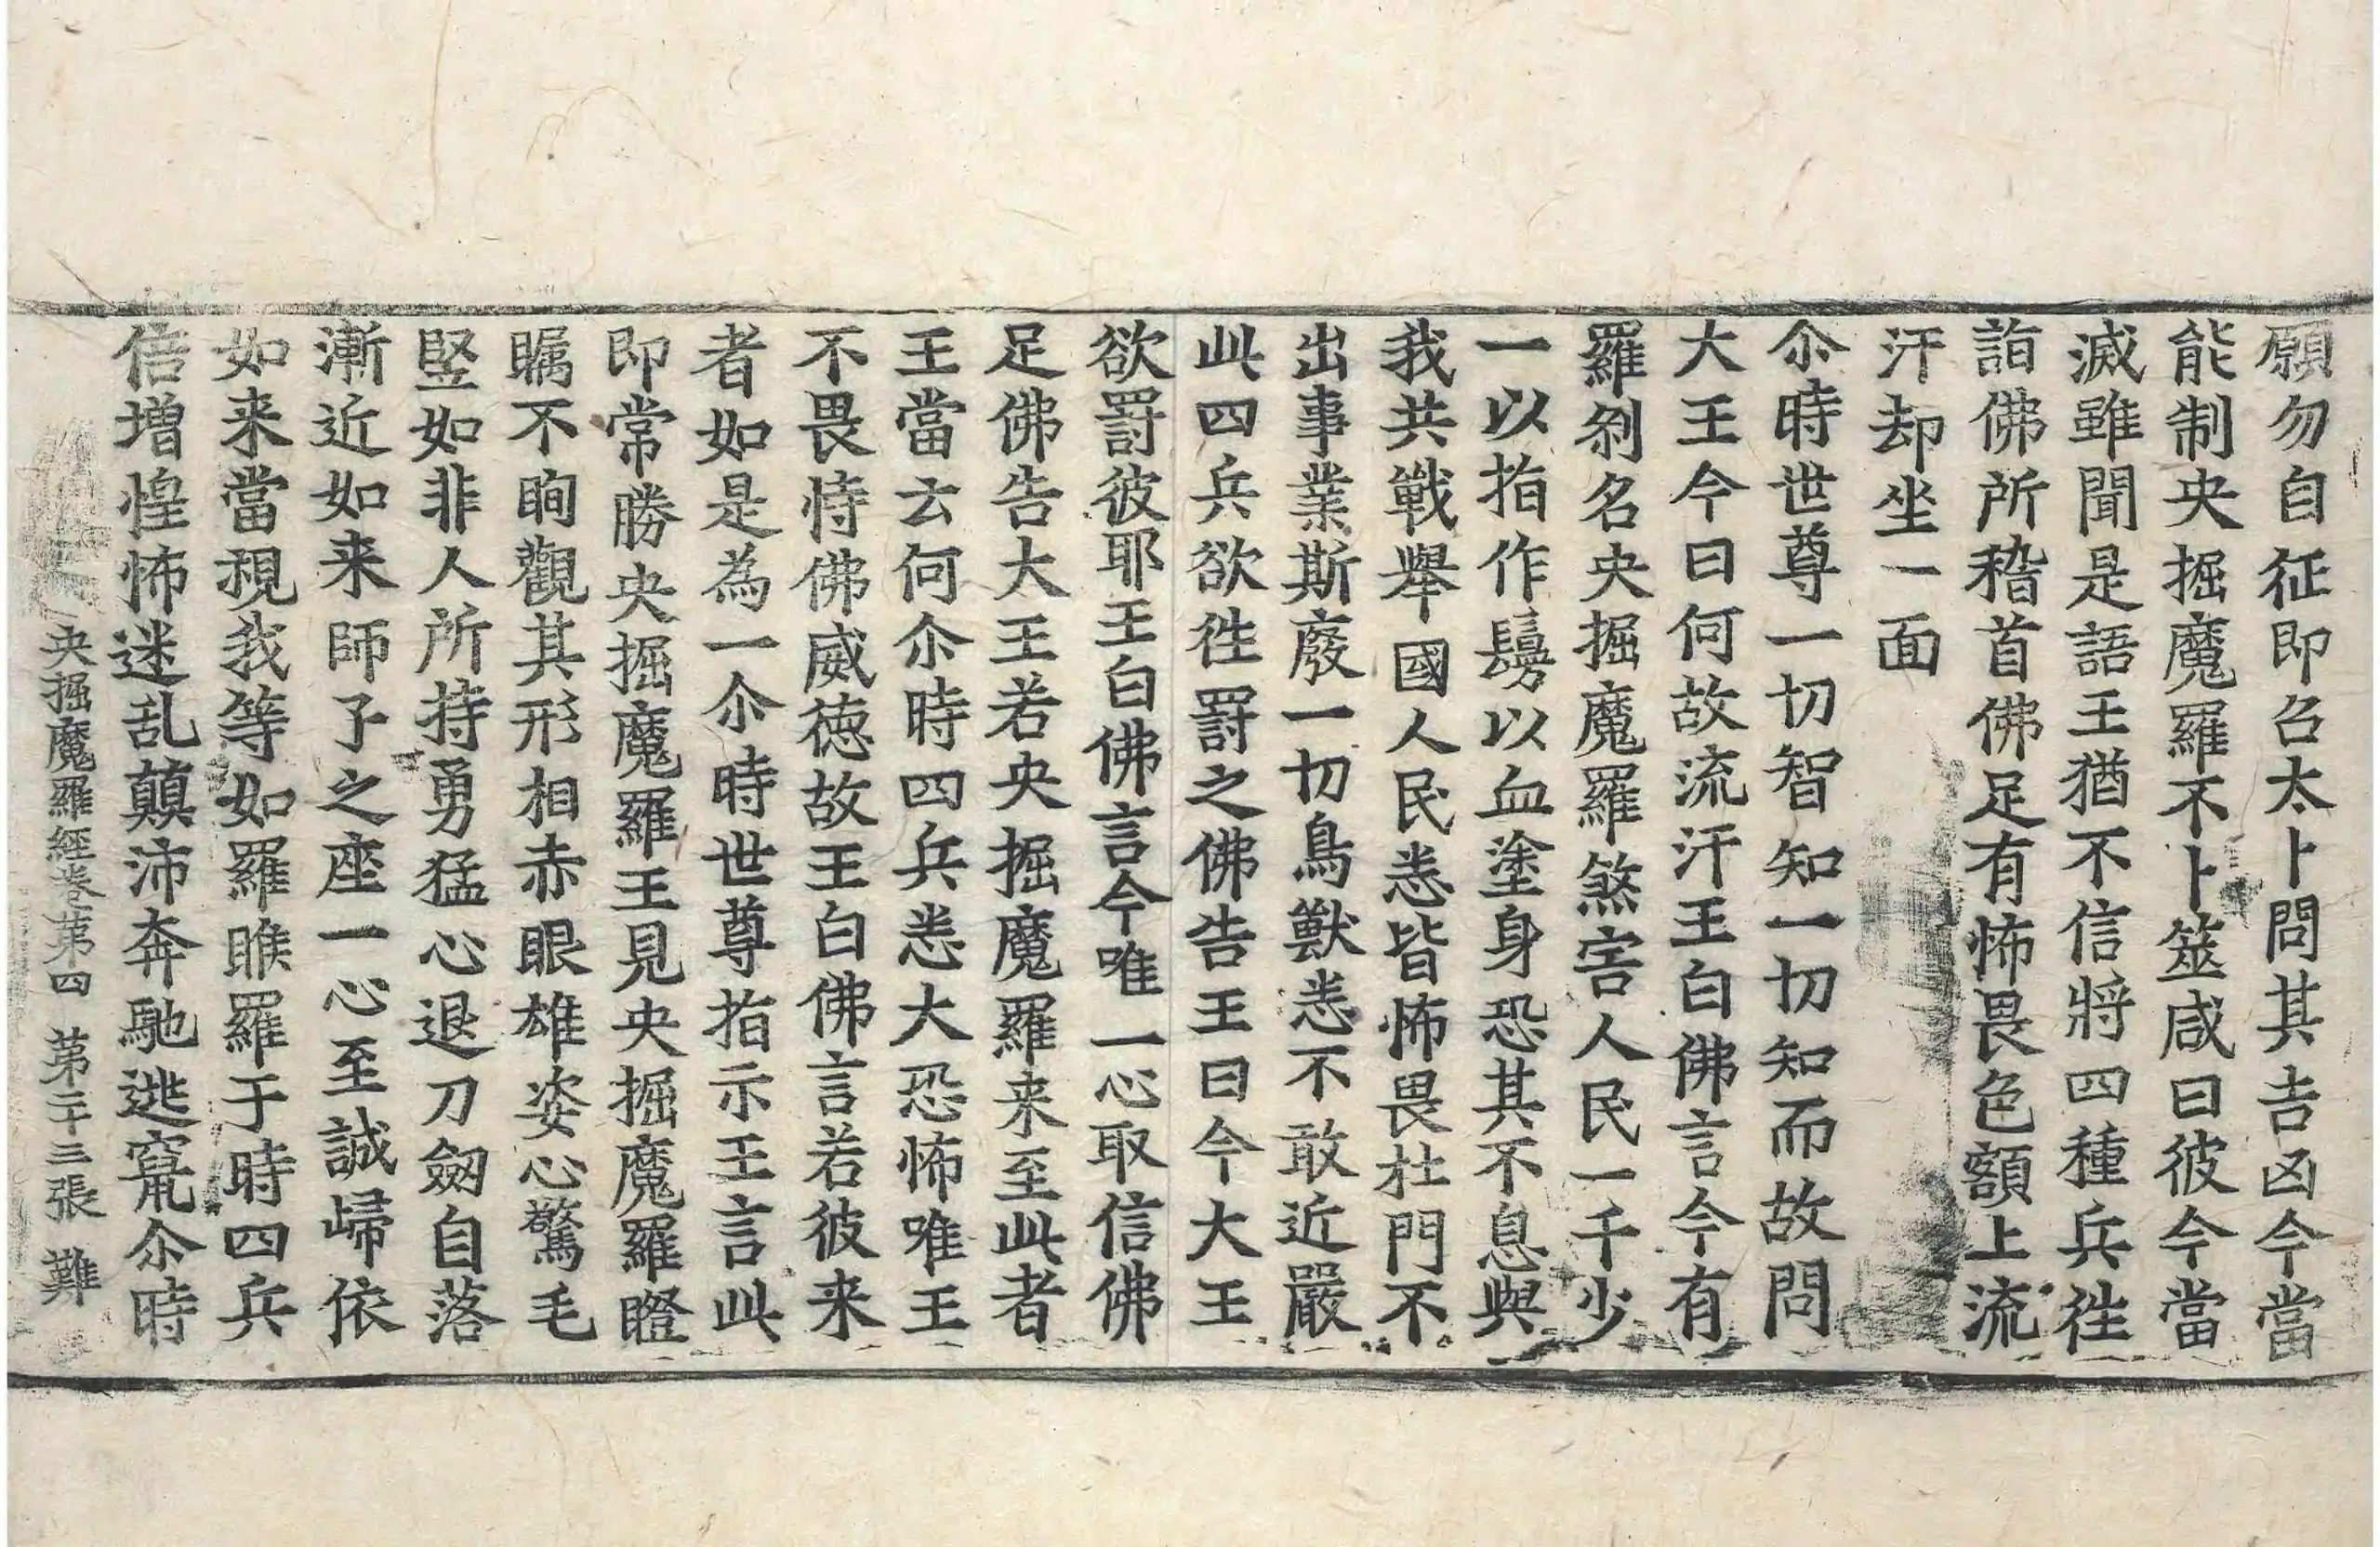 願勿自征即召太卜問其吉凶今當
能制央掘魔羅不卜筮咸曰彼今當
滅雖聞是語王猶不信將四種兵往
詣佛所稽首佛足有怖畏色額上流
汗却坐一面
尒時世尊一切智知一切知而故問
大王今日何故流汗王白佛言今有
羅剎名央掘魔羅煞害人民一千少
一以指作鬘以血塗身恐其不息與
我共戰舉國人民悉皆怖畏杜門不
出事業斯廢一切鳥獸悉不敢近嚴
此四兵欲往罸之佛告王曰今大王
欲罸彼耶王白佛言今唯一心取信佛
足佛告大王若央掘魔羅来至此者
王當云何尒時四兵悉大恐怖唯王
不畏恃佛威徳故王白佛言若彼来
者如是為一尒時世尊指示王言此
即常勝央掘魔羅王見央掘魔羅瞪
矚不眴觀其形相赤眼雄姿心驚毛
竪如非人所持勇猛心退刀劒自落
漸近如来師子之座一心至誠歸依
如来當視我等如羅睺羅于時四兵
信增惶怖迷乱顛沛奔馳逃竄尒時
央掘魔羅經卷第四 第二十三張 難